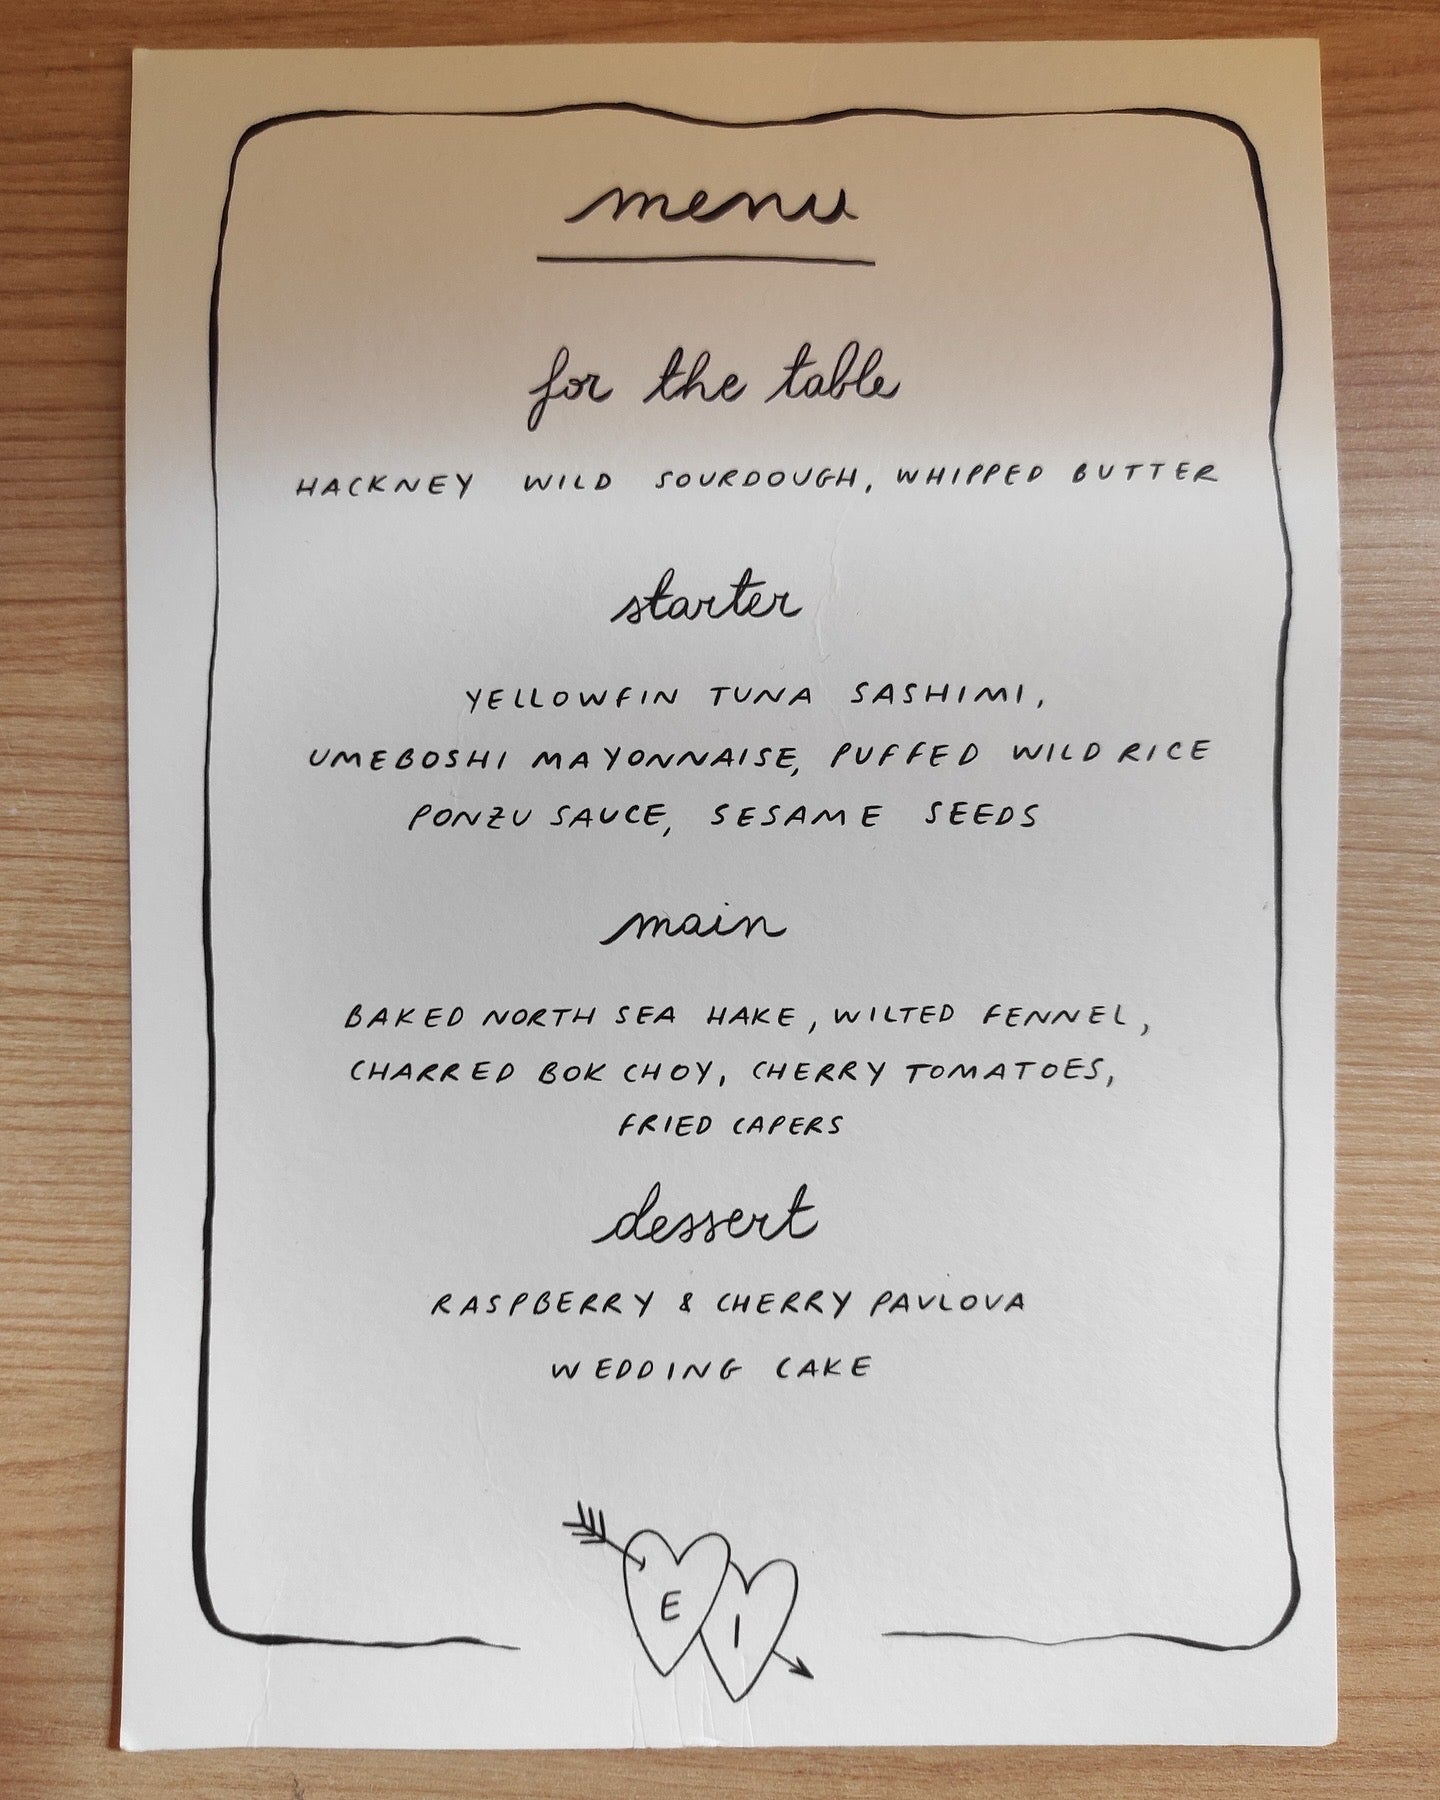 menu
for the table
HACKNEY WILD SOURDOUGH, WHIPPED BUTTER
starter
YELLOWFIN TUNA SASHIMI,
UMEBOSHI MAYONNAISE, PUFFED WILD RICE
PONZU SAUCE, SESAME SEEDS
main
BAKED NORTH SEA HAKE, WILTED FENNEL,
CHARRED BOK CHOY, CHERRY TOMATOES,
FRIED CAPERS
dessert
RASPBERRY & CHERRY PAVLOVA
WEDDING CAKE
E
I